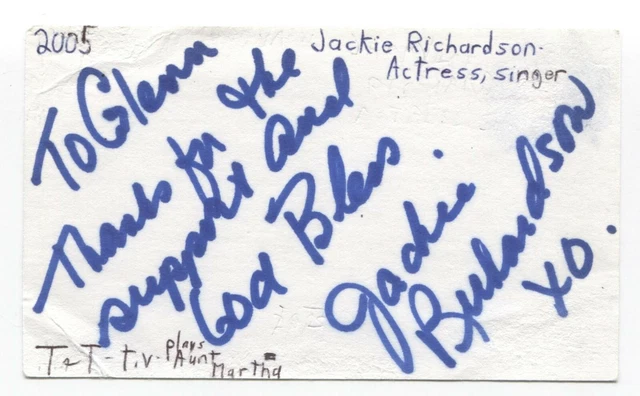 2005
Jackie Richardson-
Actress, singer
To Glenn
Thanks for the
support and
God Bless
Jackie
Richardson
XO.
T & T - t.v. - plays
Aunt
Martha